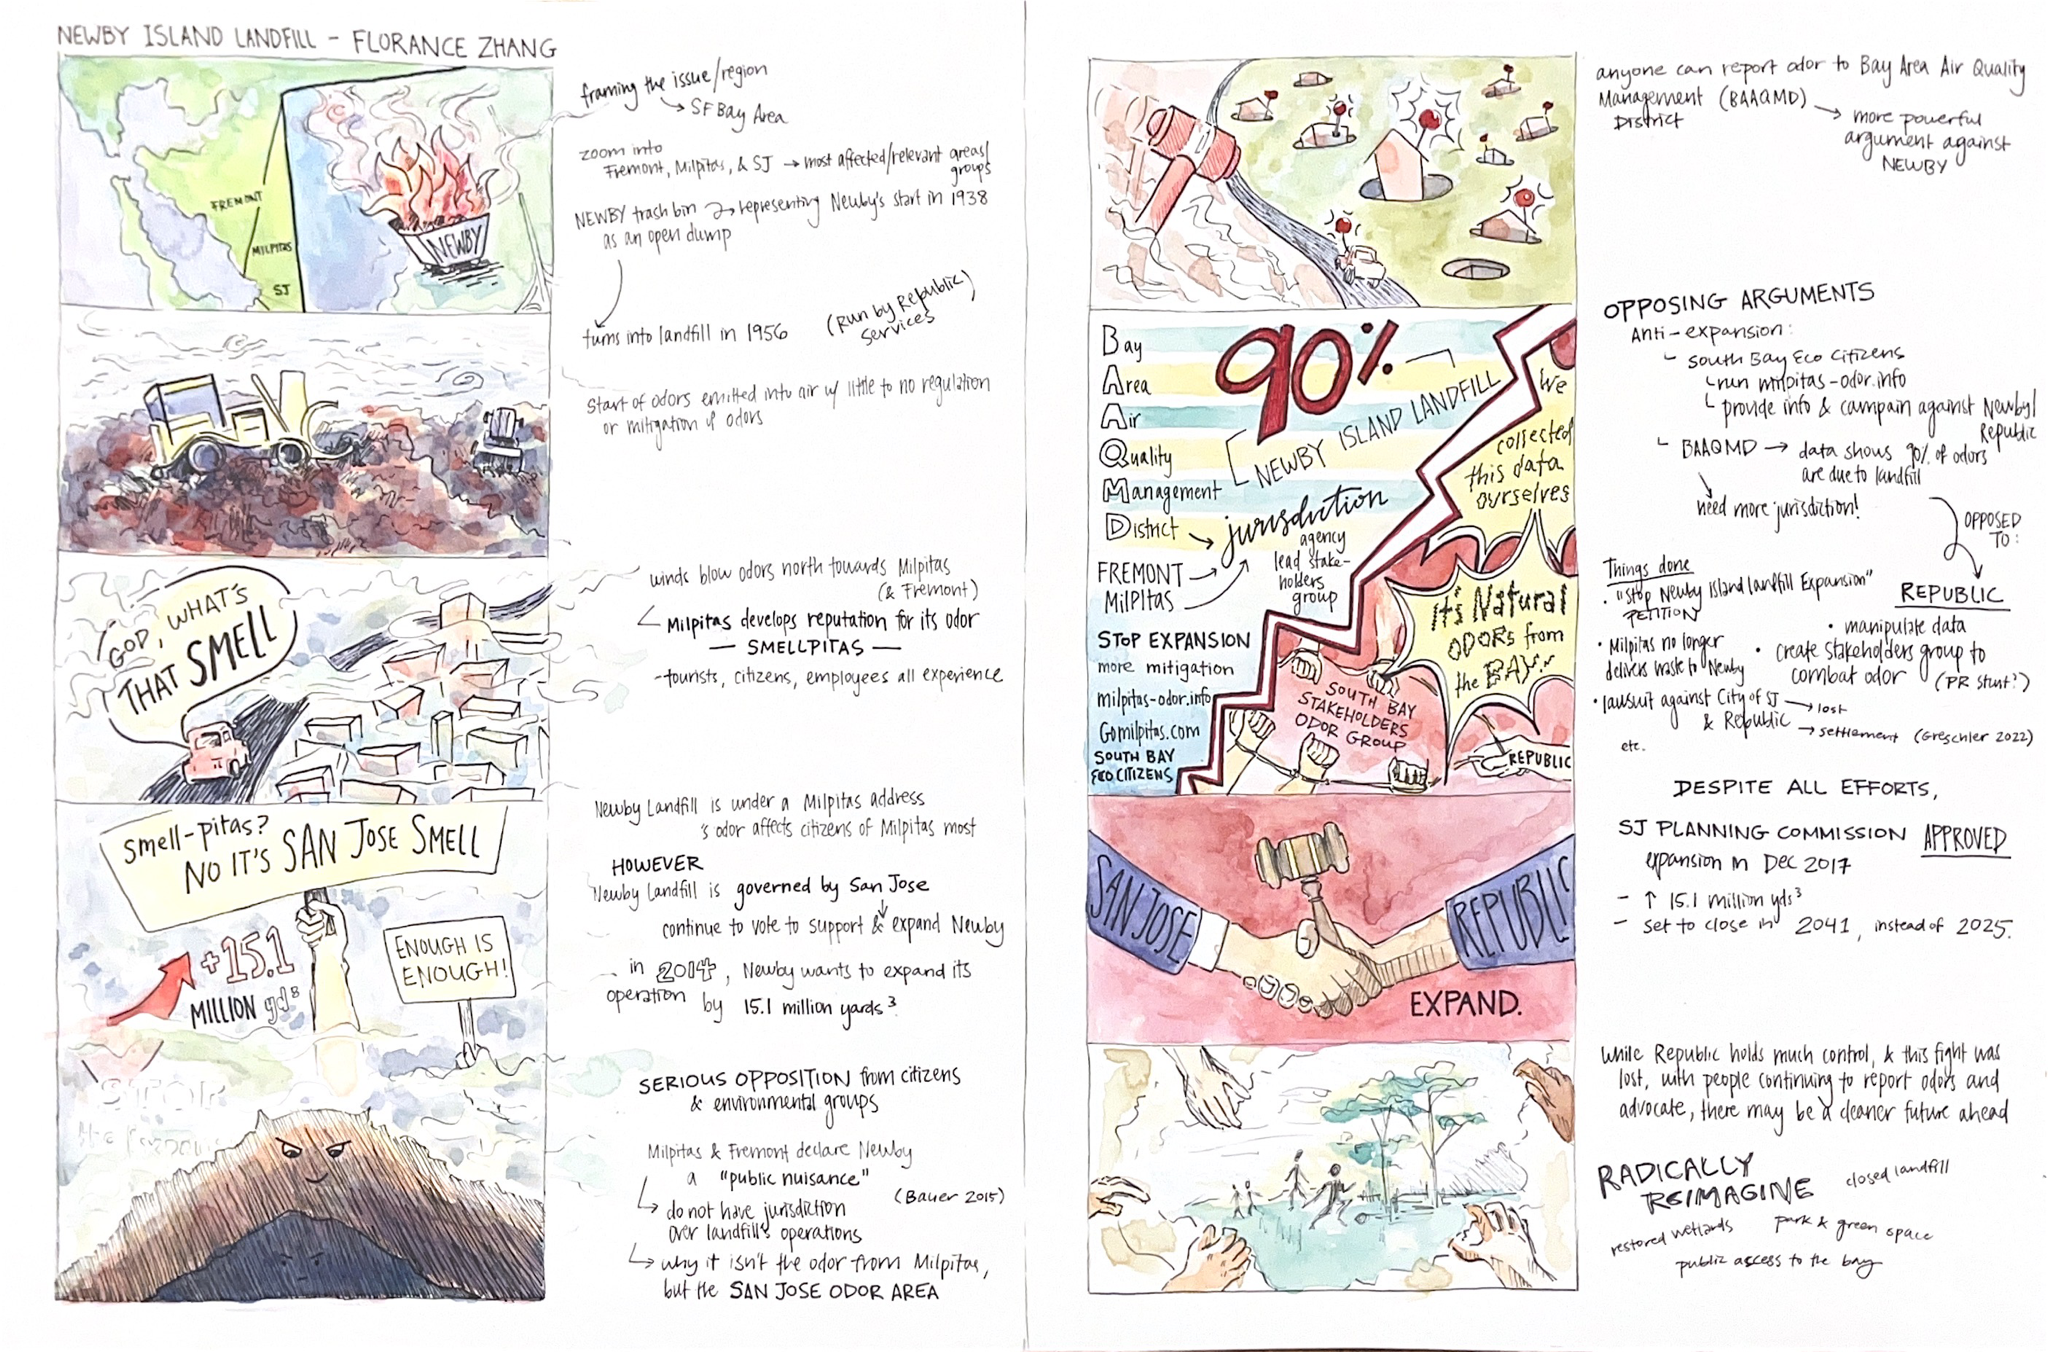 NEWBY ISLAND LANDFILL - FLORANCE ZHANG
FREMONT
MILPITAS
SJ
NEWBY
framing the issue/region
→ SF Bay Area
zoom into
Fremont, Milpitas, & SJ → most affected/relevant areas/
groups
NEWBY trash bin → representing Newby's start in 1938
as an open dump
turns into landfill in 1956
(Run by Republic)
services
Start of odors emitted into air w/ little to no regulation
or mitigation of odors
GOD, WHAT'S
THAT SMELL
winds blow odors north towards Milpitas
(& Fremont)
Milpitas develops reputation for its odor
— SMELLPITAS —
-tourists, citizens, employees all experience
Smell-pitas?
NO IT'S SAN JOSE SMELL
+15.1
MILLION yd³
ENOUGH IS
ENOUGH!
Newby Landfill is under a Milpitas address
's odor affects citizens of Milpitas most
HOWEVER
Newby Landfill is governed by San Jose
continue to vote to support & expand Newby
in 2014, Newby wants to expand its
operation by 15.1 million yards³
SERIOUS OPPOSITION from citizens
& environmental groups
Milpitas & Fremont declare Newby
a "public nuisance"
(Bauer 2015)
do not have jurisdiction
over landfill's operations
why it isn't the odor from Milpitas,
but the SAN JOSE ODOR AREA
anyone can report odor to Bay Area Air Quality
Management (BAAQMD)
District
→ more powerful
argument against
NEWBY
Bay
Area
Air
Quality
Management
District
90%
NEWBY ISLAND LANDFILL
jurisdiction
agency
lead stake-
holders
group
FREMONT
MILPITAS
STOP EXPANSION
more mitigation
milpitas-odor.info
Gomilpitas.com
SOUTH BAY
ECO CITIZENS
We
collected
this data
ourselves
It's Natural
ODORs from
the BAY...
SOUTH BAY
STAKEHOLDER'S
ODOR GROUP
REPUBLIC
OPPOSING ARGUMENTS
Anti-expansion:
South Bay Eco Citizens
run milpitas-odor.info
provide info & campain against Newby/
Republic
BAAQMD → data shows 90% of odors
are due to landfill
need more jurisdiction!
OPPOSED
TO:
REPUBLIC
• manipulate data
• create stakeholders group to
combat odor
(PR stunt?)
Things done
• "Stop Newby Island Landfill Expansion"
PETITION
• Milpitas no longer
delivers waste to Newby
• lawsuit against City of SJ
& Republic
→ lost
→ settlement (Greschler 2022)
etc.
SAN JOSE
REPUBLIC
EXPAND.
DESPITE ALL EFFORTS,
SJ PLANNING COMMISSION APPROVED
expansion in Dec 2017
- ↑ 15.1 million yds³
- set to close in 2041, instead of 2025.
While Republic holds much control, & this fight was
lost, with people continuing to report odors and
advocate, there may be a cleaner future ahead
RADICALLY
REIMAGINE
closed landfill
restored wetlands
park & green space
public access to the bay